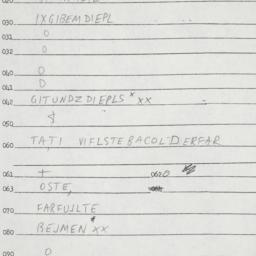 030 IXGIBEMDIEPL
031 0
032 0
040 0
041 0
042 GITUNDZDIEPLS * XX
050
060 TATI VIFLSTEBACOLDERFAR
061 + 0620
063 OSTE,
070 FARFUJLTE
080 BEJMEN * XX
090 0